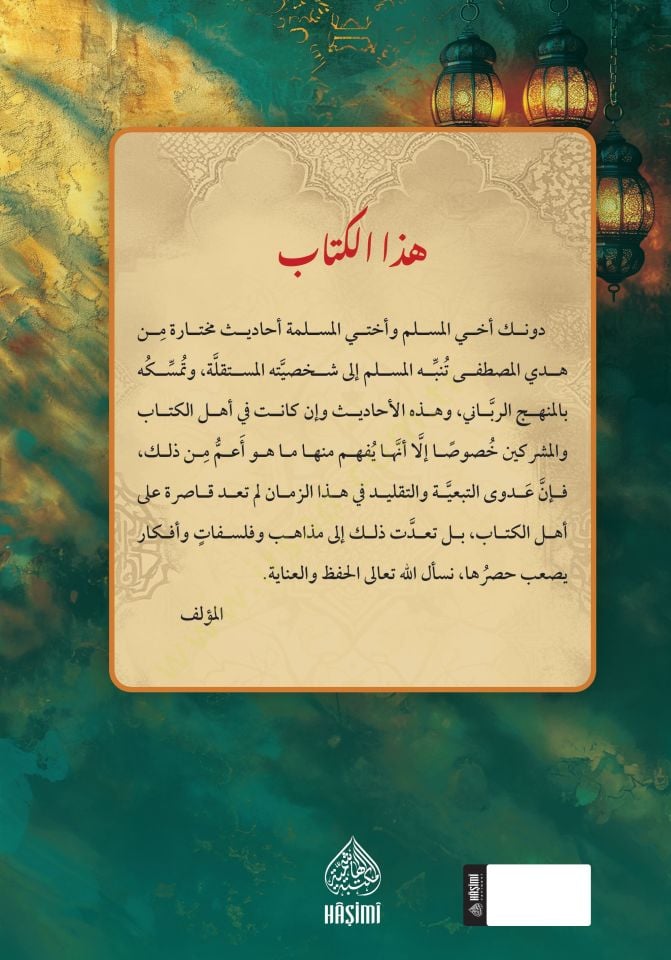 هذا الكتاب
دونك أخي المسلم وأختي المسلمة أحاديث مختارة مِن
هدي المصطفى تُنبِّه المسلم إلى شخصيَّته المستقلَّة، وتمُسِّكُه
بالمنهج الربَّاني، وهذه الأحاديث وإن كانت في أهل الكتاب
والمشركين خُصوصًا إلَّا أنَّها يُفهم منها ما هو أَعمُّ مِن ذلك،
فإنَّ عَدوى التبعيَّة والتقليد في هذا الزمان لم تعد قاصرة على
أهل الكتاب، بل تعدَّت ذلك إلى مذاهب وفلسفاتٍ وأفكار
يصعب حصرُها، نسأل الله تعالى الحفظ والعناية.
المؤلف
مكتبة هاشمية
HÂŞİMÎ
HÂŞİMÎ